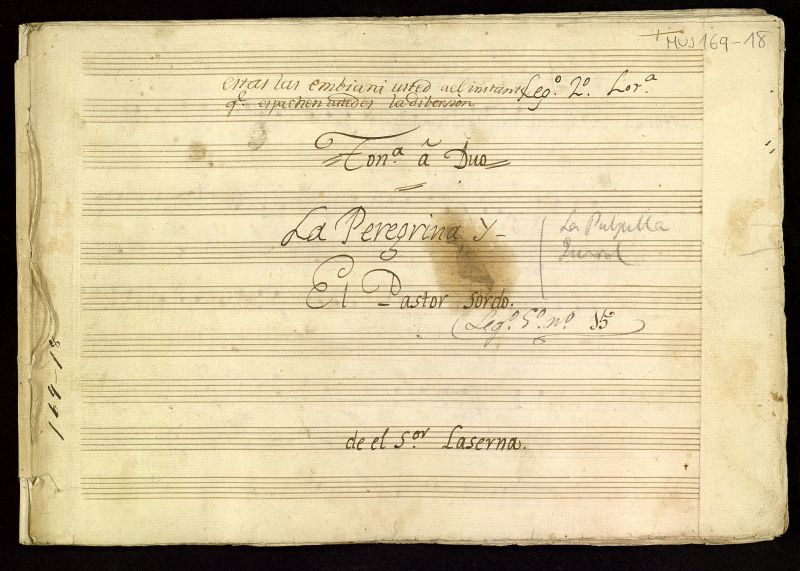 MUS 169-18
estas las embiara usted al instante Leg.º 2.º Lor.ª
q.e ustedes la dibersion
Ton.ª â Duo
La Peregrina Y-
La Pulpilla
El Pastor sordo.
(Leg.º 5.º n.º 15
169-18
de el S.or Laserna.